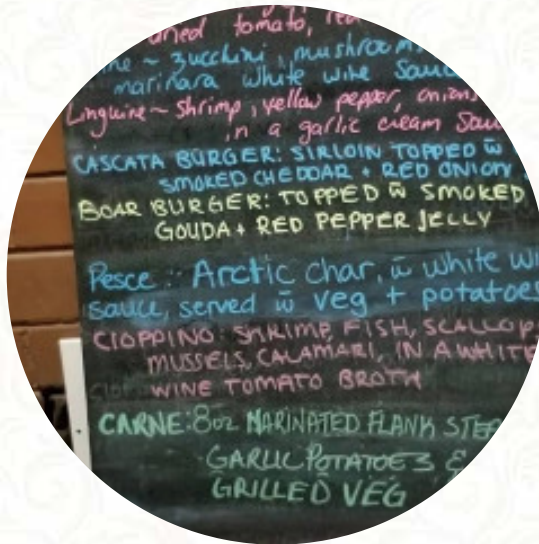 dried tomato, red
~ zucchini, mushroom
marinara white wine Sauc
Linguine ~ Shrimp, yellow pepper, onions
in a garlic cream Sau
CASCATA BURGER: SIRLOIN TOPPED w̄
SMOKED CHEDDAR + RED ONION
BOAR BURGER: TOPPED w̄ SMOKED
GOUDA + RED PEPPER JELLY
Pesce: Arctic char, w̄ white wi
sauce, served w̄ veg + potatoes
CIOPPINO: SHRIMP, FISH, SCALLOP
MUSSELS, CALAMARI, IN A WHITE
WINE TOMATO BROTH
CARNE: 8oz MARINATED FLANK STEA
GARLIC POTATOES &
GRILLED VEG